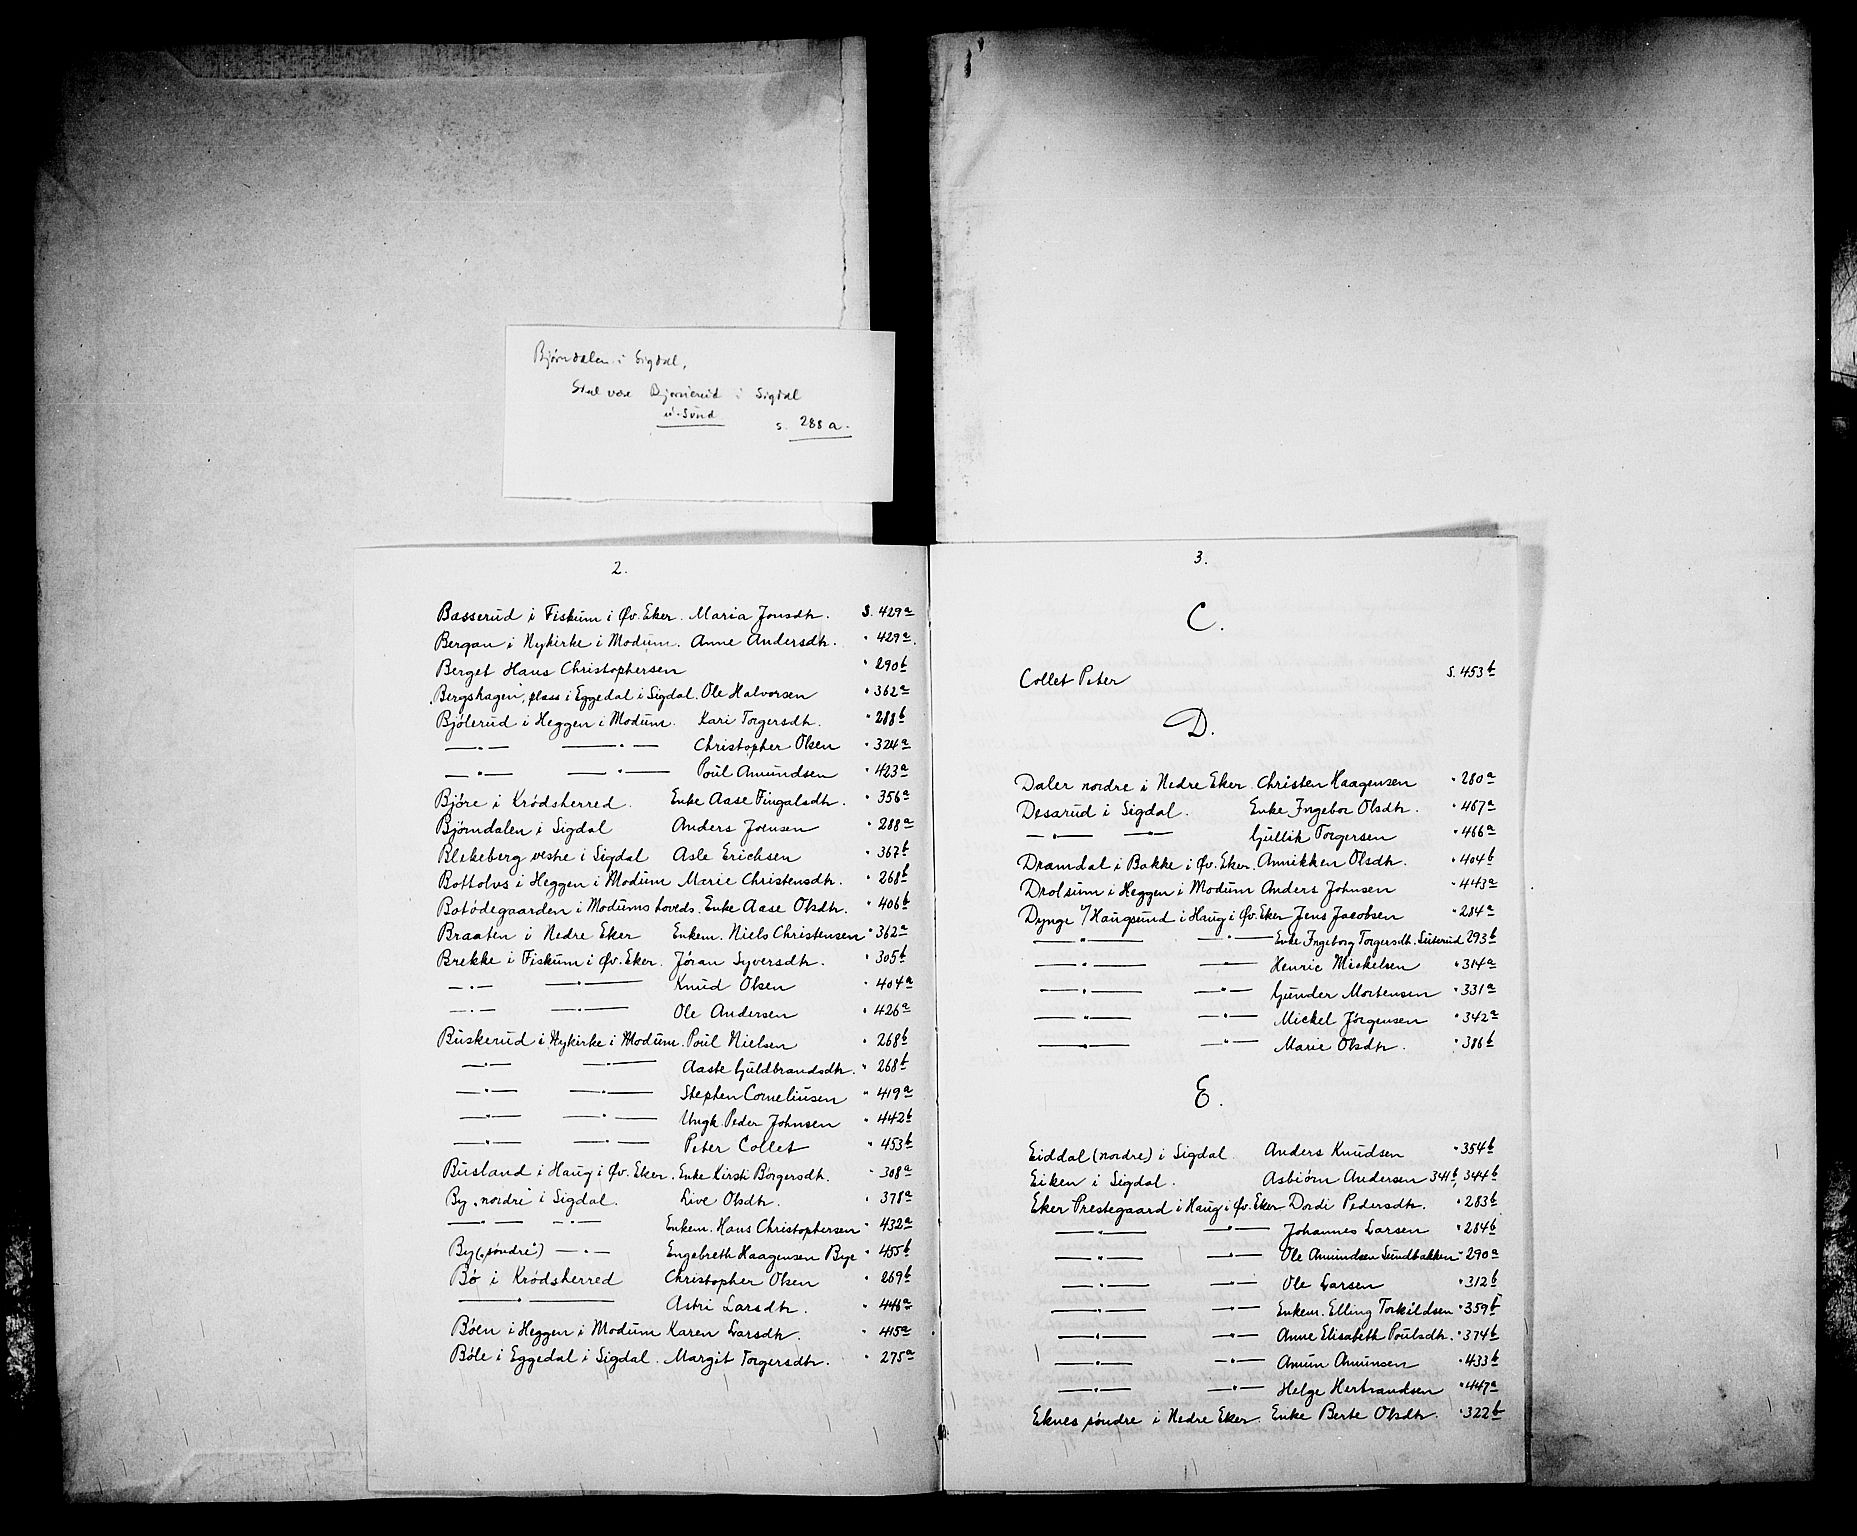 Bjørndalen i Sigdal,
Skal være Bjørnerud i Sigdal
u. Sund
s. 288 a.
2.
Basserud i Fiskum i Øv. Eker. Maria Jonsdtr. S. 429a
Bergan i Nykirke i Modum. Anne Andersdtr. " 429a.
Berget Hans Christophersen " 290b
"Bergshagen", plass i Eggedal i Sigdal. Ole Halvorsen " 362a
Bjølerud i Heggen i Modum. Kari Torgersdtr. " 288b
—"— —"— Christopher Olsen " 324a
—"— —"— Poul Amundsen " 423a
Bjøre i Krødsherred. Enke Aase Fingalsdtr. " 356a
Bjørndalen i Sigdal Anders Joensen " 288a
Blekeberg vestre i Sigdal Asle Erichsen " 367b
Bottolvs i Heggen i Modum Marie Christensdtr. " 268b
Botødegaarden i Modums hoveds. Enke Aase Olsdtr. " 406b
Braaten i Nedre Eker Enkem. Niels Christensen " 362a
Brekke i Fiskum i Øv. Eker. Jøran Syversdtr. " 305b
—"— —"— Knud Olsen " 404a
—"— —"— Ole Andersen " 426a
Buskerud i Nykirke i Modum. Poul Nielsen " 268b
—"— —"— Aaste Guldbrandsdtr. " 268b
—"— —"— Stephen Corneliusen " 419a
—"— —"— Ungk. Peder Johnsen " 442b
—"— —"— Peter Collet " 453b
Busland i Haug i Øv. Eker. Enke Kirsti Borgersdtr. " 308a
By "nordre" i Sigdal. Live Olsdtr. " 378a
—"— —"— Enkem. Hans Christophersen " 432a
By ("søndre") —"— Engebreth Haagensen Bye " 455b
Bø i Krødsherred Christopher Olsen " 269b
—"— Astri Larsdtr. " 446a
Bøen i Heggen i Modum Karen Larsdtr. " 415a
Bøle i Eggedal i Sigdal. Margit Torgersdtr. " 275a
3.
C.
Collet Peter S. 453b
D.
Daler nordre i Nedre Eker Christen Haagensen " 280a
Desarud i Sigdal. Enke Ingebor Olsdtr. " 467a
—"— —"— Gullik Torgersen " 466a
Dramdal i Bakke i Øv. Eker. Annikken Olsdtr. " 404b
Drolsum i Heggen i Modum Anders Johnsen " 443a
Dynge u/Haugsund i Haug i Øv. Eker Jens Jacobsen " 284a
—"— —"— Enke Ingeborg Torgersdtr. Luterud 293b
—"— —"— Henric Mickelsen " 314a
—"— —"— Gunder Mortensen " 331a
—"— —"— Mickel Jørgensen " 342a
—"— —"— Marie Olsdtr. " 386b
E.
Eiddal (nordre) i Sigdal Anders Knudsen " 354b
Eiken i Sigdal. Asbiørn Andersen 341b, 344b
Eker Prestegaard i Haug i Øv. Eker Dordi Pedersdtr. " 283b
—"— —"— Johannes Larsen " 284b
—"— —"— Ole Amundsen Sundbakken " 290a
—"— —"— Ole Larsen " 312b
—"— —"— Enkem. Elling Torkildsen " 359b
—"— —"— Anne Elisabeth Poulsdtr. " 374b
—"— —"— Amun Amunsen " 433b
—"— —"— Helge Herbrandsen " 447a
Eknes søndre i Nedre Eker. Enke Berte Olsdtr. " 322b